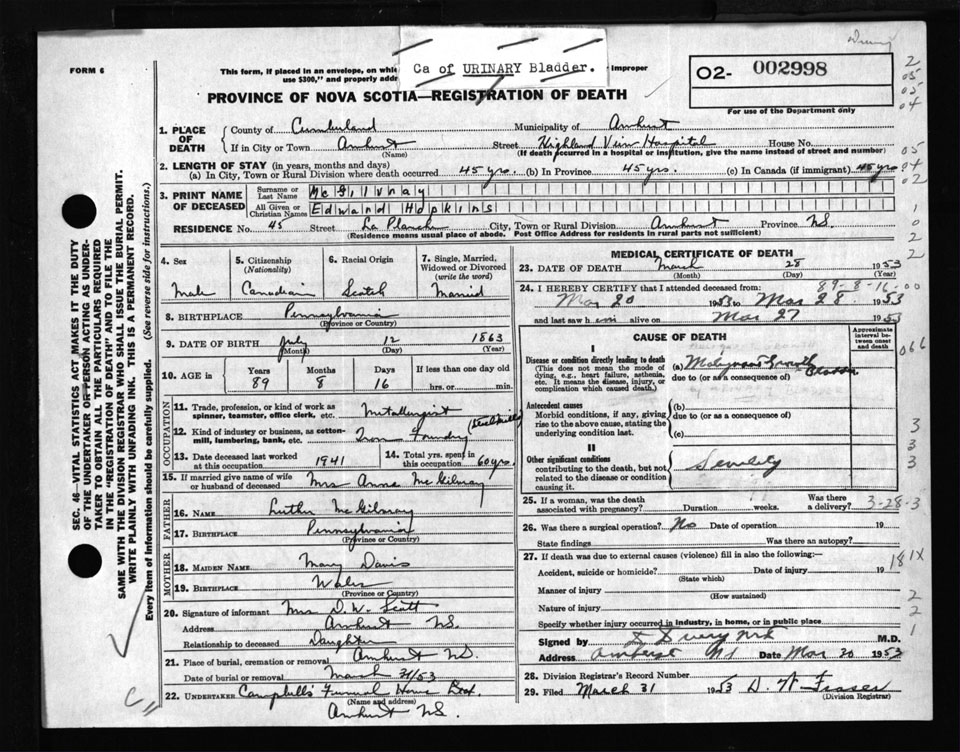 FORM 6
This form, if placed in an envelope, on whic improper
use $300," and properly addr
Ca of URINARY Bladder.
O2- 002998
For use of the Department only
PROVINCE OF NOVA SCOTIA—REGISTRATION OF DEATH
1. PLACE OF DEATH
County of Cumberland Municipality of Amherst
If in City or Town Amherst (Name) Street Highland View Hospital House No.
(If death occurred in a hospital or institution, give the name instead of street and number)
2. LENGTH OF STAY (in years, months and days)
(a) In City, Town or Rural Division where death occurred 45 yrs. (b) In Province 45 yrs. (c) In Canada (if immigrant) 45 yrs
3. PRINT NAME OF DECEASED
Surname or Last Name McGilvray
All Given or Christian Names Edward Hopkins
RESIDENCE No. 45 Street La Planche City, Town or Rural Division Amherst Province NS.
(Residence means usual place of abode. Post Office Address for residents in rural parts not sufficient)
4. Sex Male
5. Citizenship (Nationality) Canadian
6. Racial Origin Scotch
7. Single, Married, Widowed or Divorced (write the word) Married
8. BIRTHPLACE Pennsylvania
(Province or Country)
9. DATE OF BIRTH July 12 1863
(Month) (Day) (Year)
10. AGE in Years Months Days If less than one day
89 8 16 hrs. or min.
OCCUPATION
11. Trade, profession, or kind of work as spinner, teamster, office clerk, etc. Metallurgist
12. Kind of industry or business, as cotton-mill, lumbering, bank, etc. Iron Foundry (Steel Mills)
13. Date deceased last worked at this occupation 1941
14. Total yrs. spent in this occupation 60 yrs.
15. If married give name of wife or husband of deceased Mrs Anna McGilvray
FATHER
16. NAME Luther McGilvray
17. BIRTHPLACE Pennsylvania
(Province or Country)
MOTHER
18. MAIDEN NAME Mary Davis
19. BIRTHPLACE Wales
(Province or Country)
20. Signature of informant Mrs D. W. Scott
Address Amherst NS.
Relationship to deceased Daughter
21. Place of burial, cremation or removal Amherst NS.
Date of burial or removal March 31/53
22. UNDERTAKER Campbell's Funeral Home
(Name and address)
Amherst NS.
MEDICAL CERTIFICATE OF DEATH
23. DATE OF DEATH March 28 1953
(Month) (Day) (Year)
89-8-16-00
24. I HEREBY CERTIFY that I attended deceased from:
Mar 20 1953 to Mar 28 1953
and last saw him alive on Mar 27 1953
CAUSE OF DEATH
Approximate interval between onset and death
I
Disease or condition directly leading to death
(This does not mean the mode of dying, e.g., heart failure, asthenia, etc. It means the disease, injury, or complication which caused death.)
(a) Malignant Growth Bladder
due to (or as a consequence of)
Antecedent causes
Morbid conditions, if any, giving rise to the above cause, stating the underlying condition last.
(b)
due to (or as a consequence of)
(c)
II
Other significant conditions
contributing to the death, but not related to the disease or condition causing it.
Senility
25. If a woman, was the death associated with pregnancy? Duration weeks. Was there a delivery? 3-28-3
26. Was there a surgical operation? No Date of operation 19
State findings Was there an autopsy?
27. If death was due to external causes (violence) fill in also the following:—
Accident, suicide or homicide? Date of injury 19
(State which)
181X
Manner of injury
(How sustained)
Nature of injury
Specify whether injury occurred in industry, in home, or in public place
Signed by M.D.
Address Amherst NS Date Mar 30 1953
28. Division Registrar's Record Number
29. Filed March 31 1953 D. W. Fraser
(Division Registrar)
SEC. 46—VITAL STATISTICS ACT MAKES IT THE DUTY
OF THE UNDERTAKER OR PERSON ACTING AS UNDER-
TAKER TO OBTAIN ALL THE PARTICULARS REQUIRED
IN THE "REGISTRATION OF DEATH" AND TO FILE THE
SAME WITH THE DIVISION REGISTRAR WHO SHALL ISSUE THE BURIAL PERMIT.
WRITE PLAINLY WITH UNFADING INK. THIS IS A PERMANENT RECORD.
Every item of Information should be carefully supplied. (See reverse side for instructions.)
2
05
05
04
05
04
02
1
0
2
2
066
3
3
3
2
2
1